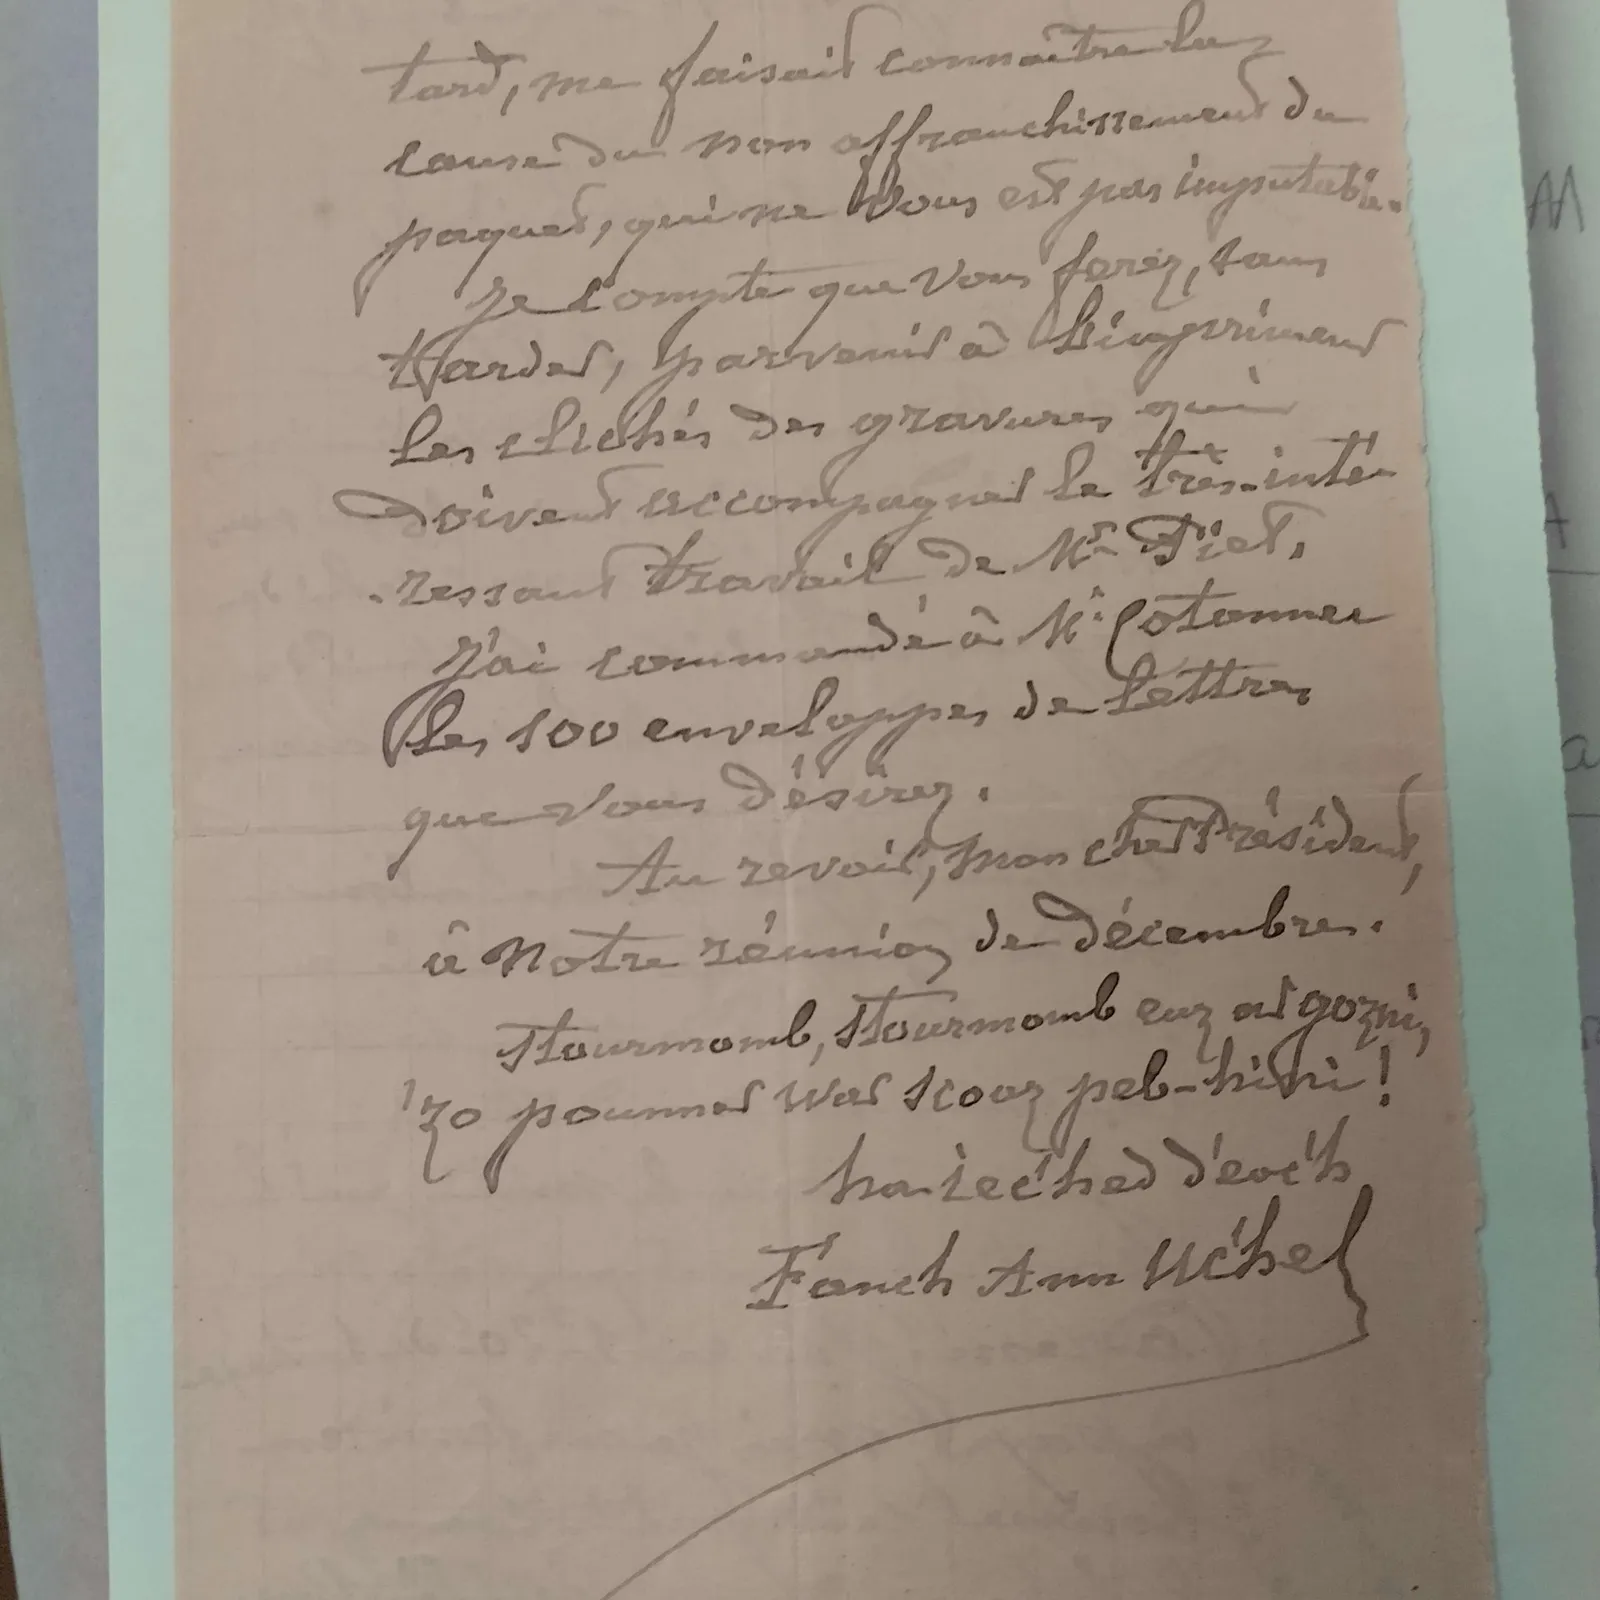 tard, me faisait connaître la
cause du non affranchissement du
paquet, qui ne vous est pas imputable.
Je compte que vous ferez, sans
tarder, parvenir à l'imprimeur
les clichés des gravures qui
doivent accompagner le très-inté-
-ressant travail de Mr Piet.
J'ai commandé à Mr Cotonnec
les 100 enveloppes de lettres
que vous désirez.
Au revoir, mon cher Président,
à notre réunion de décembre.
Stourmomb, stourmomb euz ar gozni,
'zo pounner war scoaz peb-hini!
ha iec'hed d'eoc'h
Fanch Ann Uc'hel
M
A
a